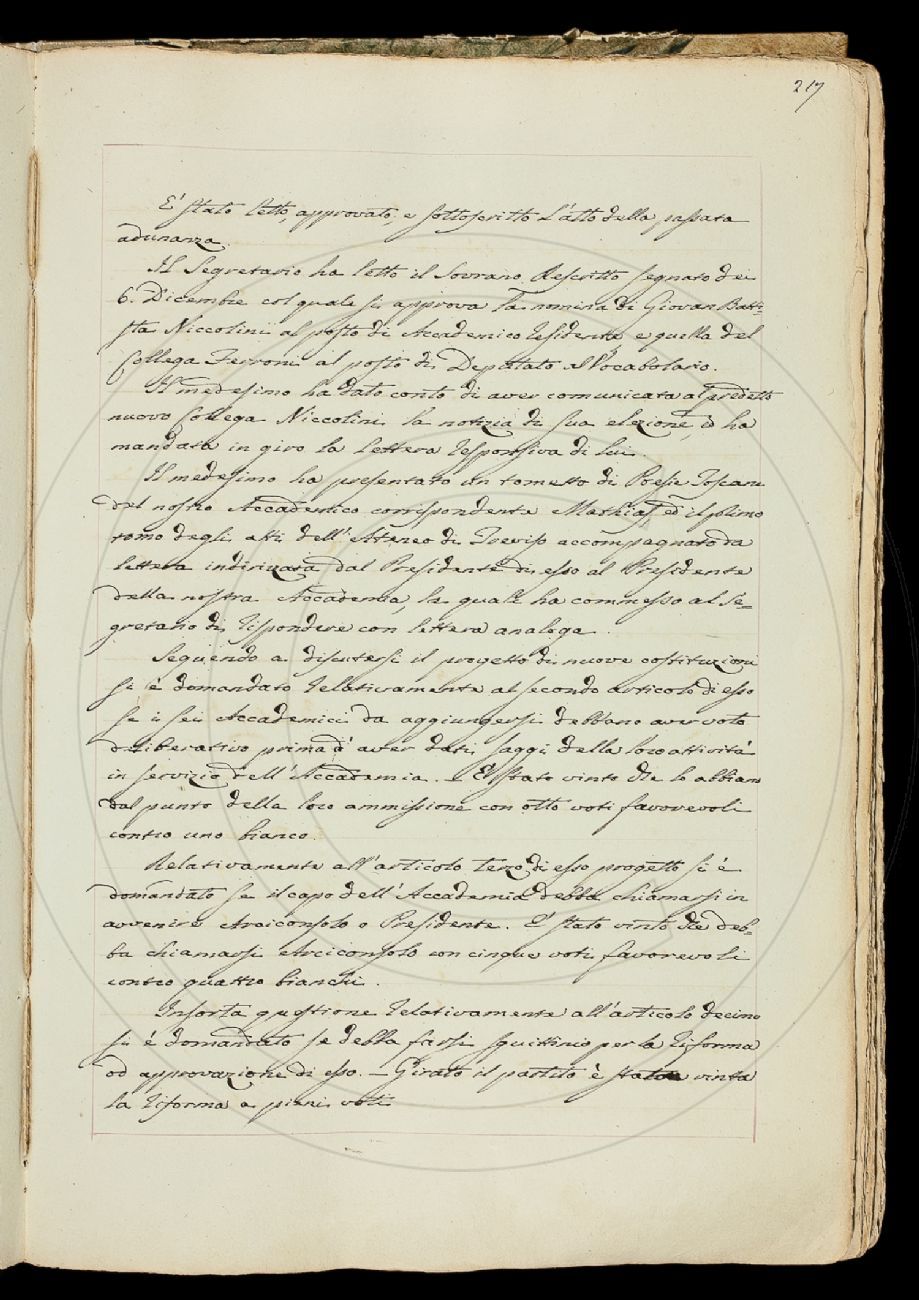 217
E' stato letto, approvato, e sottoscritto l'atto della passata
adunanza.
Il Segretario ha letto il Sovrano Rescritto segnato dei
6. Dicembre col quale si approva la nomina di Giovan Batti-
sta Niccolini al posto di Accademico residente e quella del
Collega Ferroni al posto di Deputato al Vocabolario.
Il medesimo ha dato conto di aver comunicata al predetto
nuovo Collega Niccolini la notizia di sua elezione, ed ha
mandata in giro la lettera responsiva di lui.
Il medesimo ha presentato un tometto di Poesie Toscane
del nostro Accademico corrispondente Mathias, ed il primo
tomo degli atti dell'Ateneo di Treviso accompagnato da
lettera indirizzata dal Presidente di esso al Presidente
della nostra Accademia, la quale ha commesso al Se-
gretario di rispondere con lettera analoga.
Seguendo a discutersi il progetto di nuove costituzioni
si è domandato relativamente al secondo articolo di esso
se i sei Accademici da aggiungersi debbano aver voto
deliberativo prima d'aver dati saggi della loro attività
in servizio dell'Accademia. – E' stato vinto che lo abbiano
dal punto della loro ammissione con otto voti favorevoli
contro uno bianco.
Relativamente all'articolo terzo di esso progetto si è
domandato se il capo dell'Accademia debba chiamarsi in
avvenire Arciconsolo o Presidente. E' stato vinto che deb-
ba chiamarsi Arciconsolo con cinque voti favorevoli
contro quattro bianchi.
Insorta questione relativamente all'articolo decimo
si è domandato se debba farsi squittinio per la riforma
od approvazione di esso. – Girato il partito è stata vinta
la riforma a pieni voti